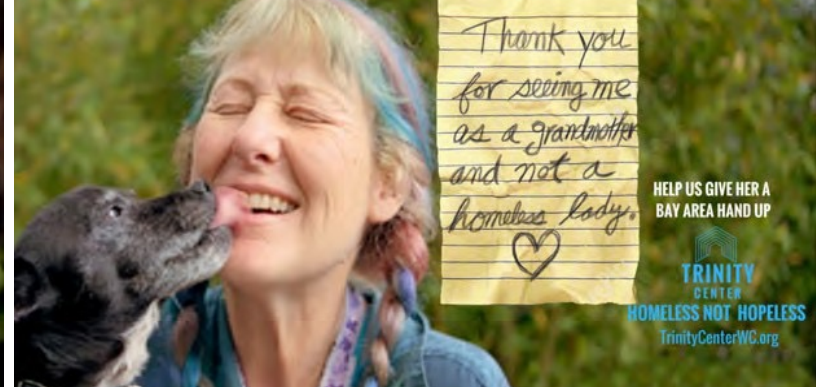 Thank you
for seeing me
as a grandmother
and not a
homeless lady.
HELP US GIVE HER A
BAY AREA HAND UP
TRINITY
CENTER
HOMELESS NOT HOPELESS
TrinityCenterWC.org